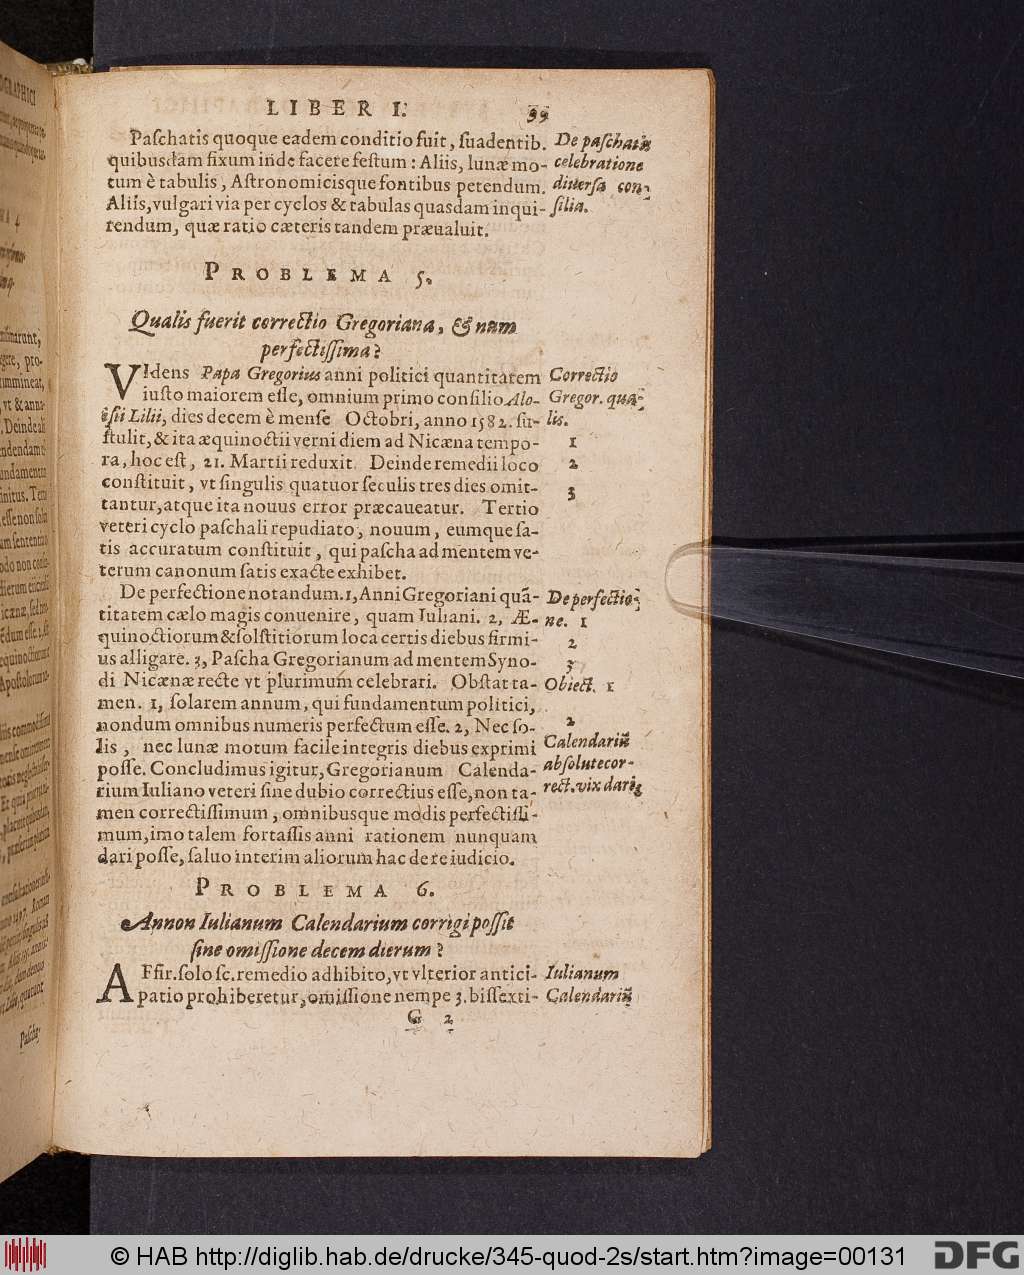 LIBER I. 99
Paſchatis quoque eadem conditio fuit, ſuadentib.
quibusdam fixum inde facere feſtum : Aliis, lunæ mo-
tum è tabulis, Aſtronomicisque fontibus petendum.
Aliis, vulgari via per cyclos & tabulas quasdam inqui-
rendum, quæ ratio cæteris tandem præualuit.
De paſchatis
celebratione
diuerſa con-
ſilia.
PROBLEMA 5.
Qualis fuerit correctio Gregoriana, & num
perfectiſſima?
VIdens Papa Gregorius anni politici quantitatem
iuſto maiorem eſſe, omnium primo conſilio Alo-
ëſii Lilii, dies decem è menſe Octobri, anno 1582. ſu-
ſtulit, & ita æquinoctii verni diem ad Nicæna tempo-
ra, hoc eſt, 21. Martii reduxit. Deinde remedii loco
conſtituit, vt ſingulis quatuor ſeculis tres dies omit-
tantur, atque ita nouus error præcaueatur. Tertio
veteri cyclo paſchali repudiato, nouum, eumque ſa-
tis accuratum conſtituit, qui paſcha ad mentem ve-
terum canonum ſatis exacte exhibet.
Correctio
Gregor. qua-
lis.
1
2
3
De perfectione notandum. 1, Anni Gregoriani quã-
titatem cælo magis conuenire, quam Iuliani. 2, Æ-
quinoctiorum & ſolſtitiorum loca certis diebus firmi-
us alligare. 3, Paſcha Gregorianum ad mentem Syno-
di Nicænæ recte vt plurimum celebrari. Obſtat ta-
men. 1, ſolarem annum, qui fundamentum politici,
nondum omnibus numeris perfectum eſſe. 2, Nec ſo-
lis, nec lunæ motum facile integris diebus exprimi
poſſe. Concludimus igitur, Gregorianum Calenda-
rium Iuliano veteri ſine dubio correctius eſſe, non ta-
men correctiſſimum, omnibusque modis perfectiſſi-
mum, imo talem fortaſſis anni rationem nunquam
dari poſſe, ſaluo interim aliorum hac de re iudicio.
De perfectio-
ne. 1
2
3
Obiect. 1
2
Calendariũ
abſolute cor-
rect. vix dari.
PROBLEMA 6.
Annon Iulianum Calendarium corrigi poſſit
ſine omiſſione decem dierum?
AFfir. ſolo ſc. remedio adhibito, vt vlterior antici-
patio prohiberetur, omiſſione nempe 3. biſſexti-
Iulianum
Calendariũ
G 2
© HAB http://diglib.hab.de/drucke/345-quod-2s/start.htm?image=00131
DFG